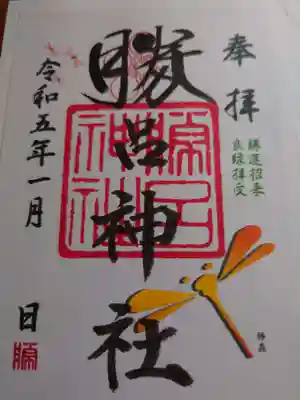 奉拝
勝運招来
良縁拝受
勝呂神社
勝呂神社
令和五年一月
日
勝虫
勝